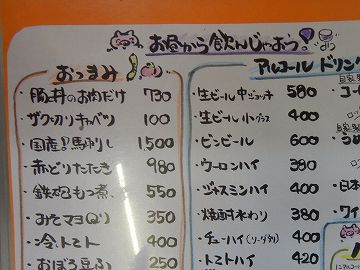 お昼から飲んじゃおう!
おつまみ
・豚丼のお肉だけ 730
・ザク切りキャベツ 100
・国産!馬刺し 1,500
・赤どりたたき 980
・鉄砲もつ煮 550
・みそマヨQり 350
・冷トマト 400
・おぼろ豆ふ 250
アルコールドリン
・生ビール中ジョッキ 580
・生ビール小グラス 400
・ビンビール 600
・ウーロンハイ 380
・ジャスミンハイ 400
・焼酎水わり 380
・チューハイ(ソーダ割) 400
・トマトハイ 420